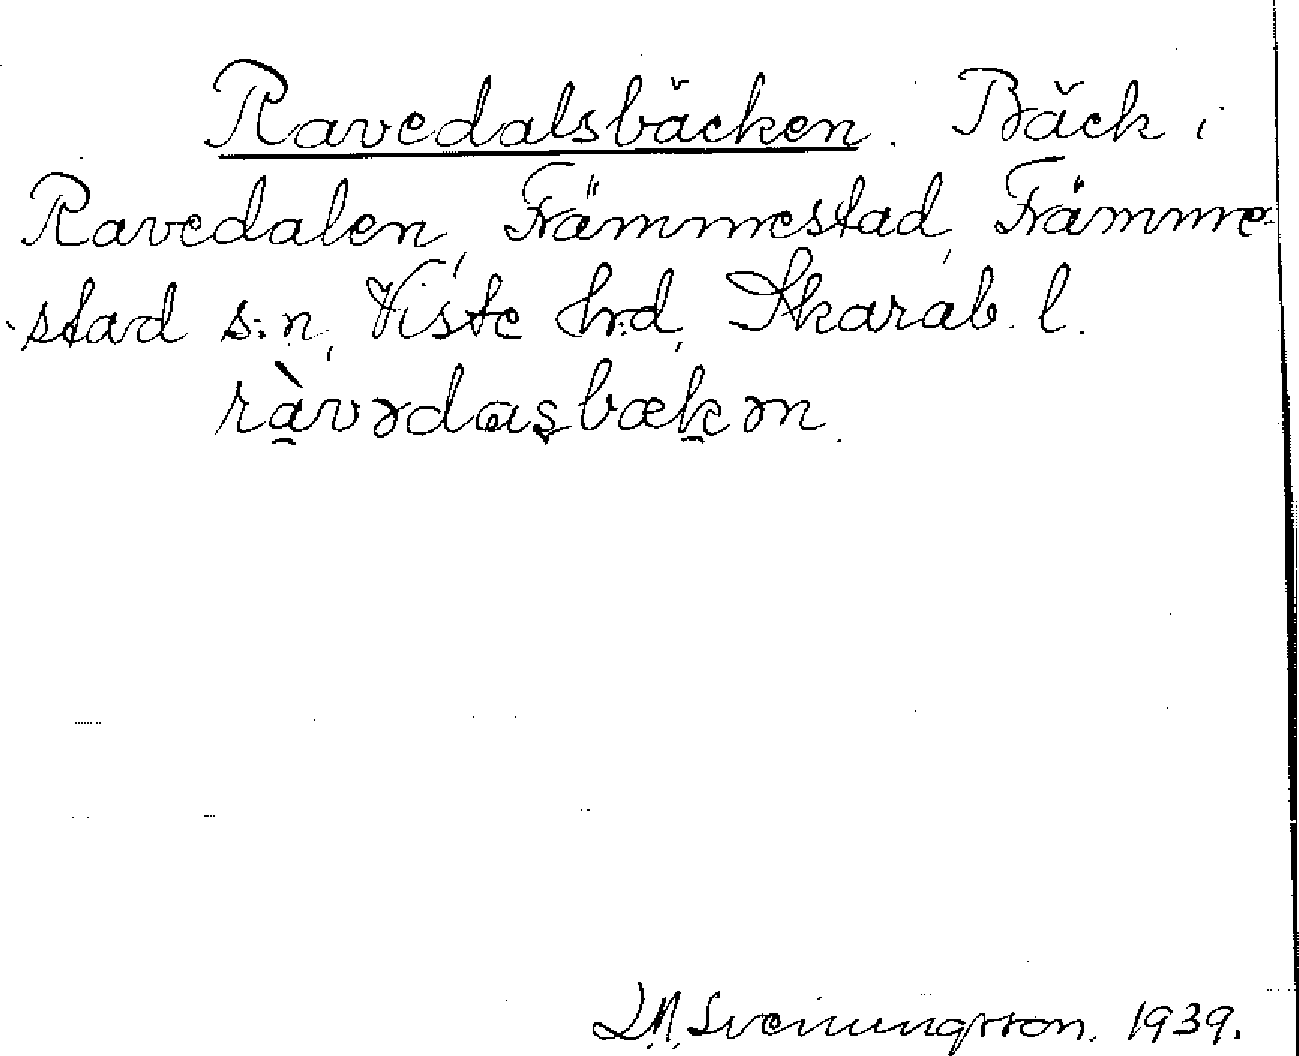 Ravedalsbäcken. Bäck i
Ravedalen, Främmestad, Främme-
stad s:n, Viste hrd, Skarab. l.
ràvədasbækən.
Sveinungsson. 1939.